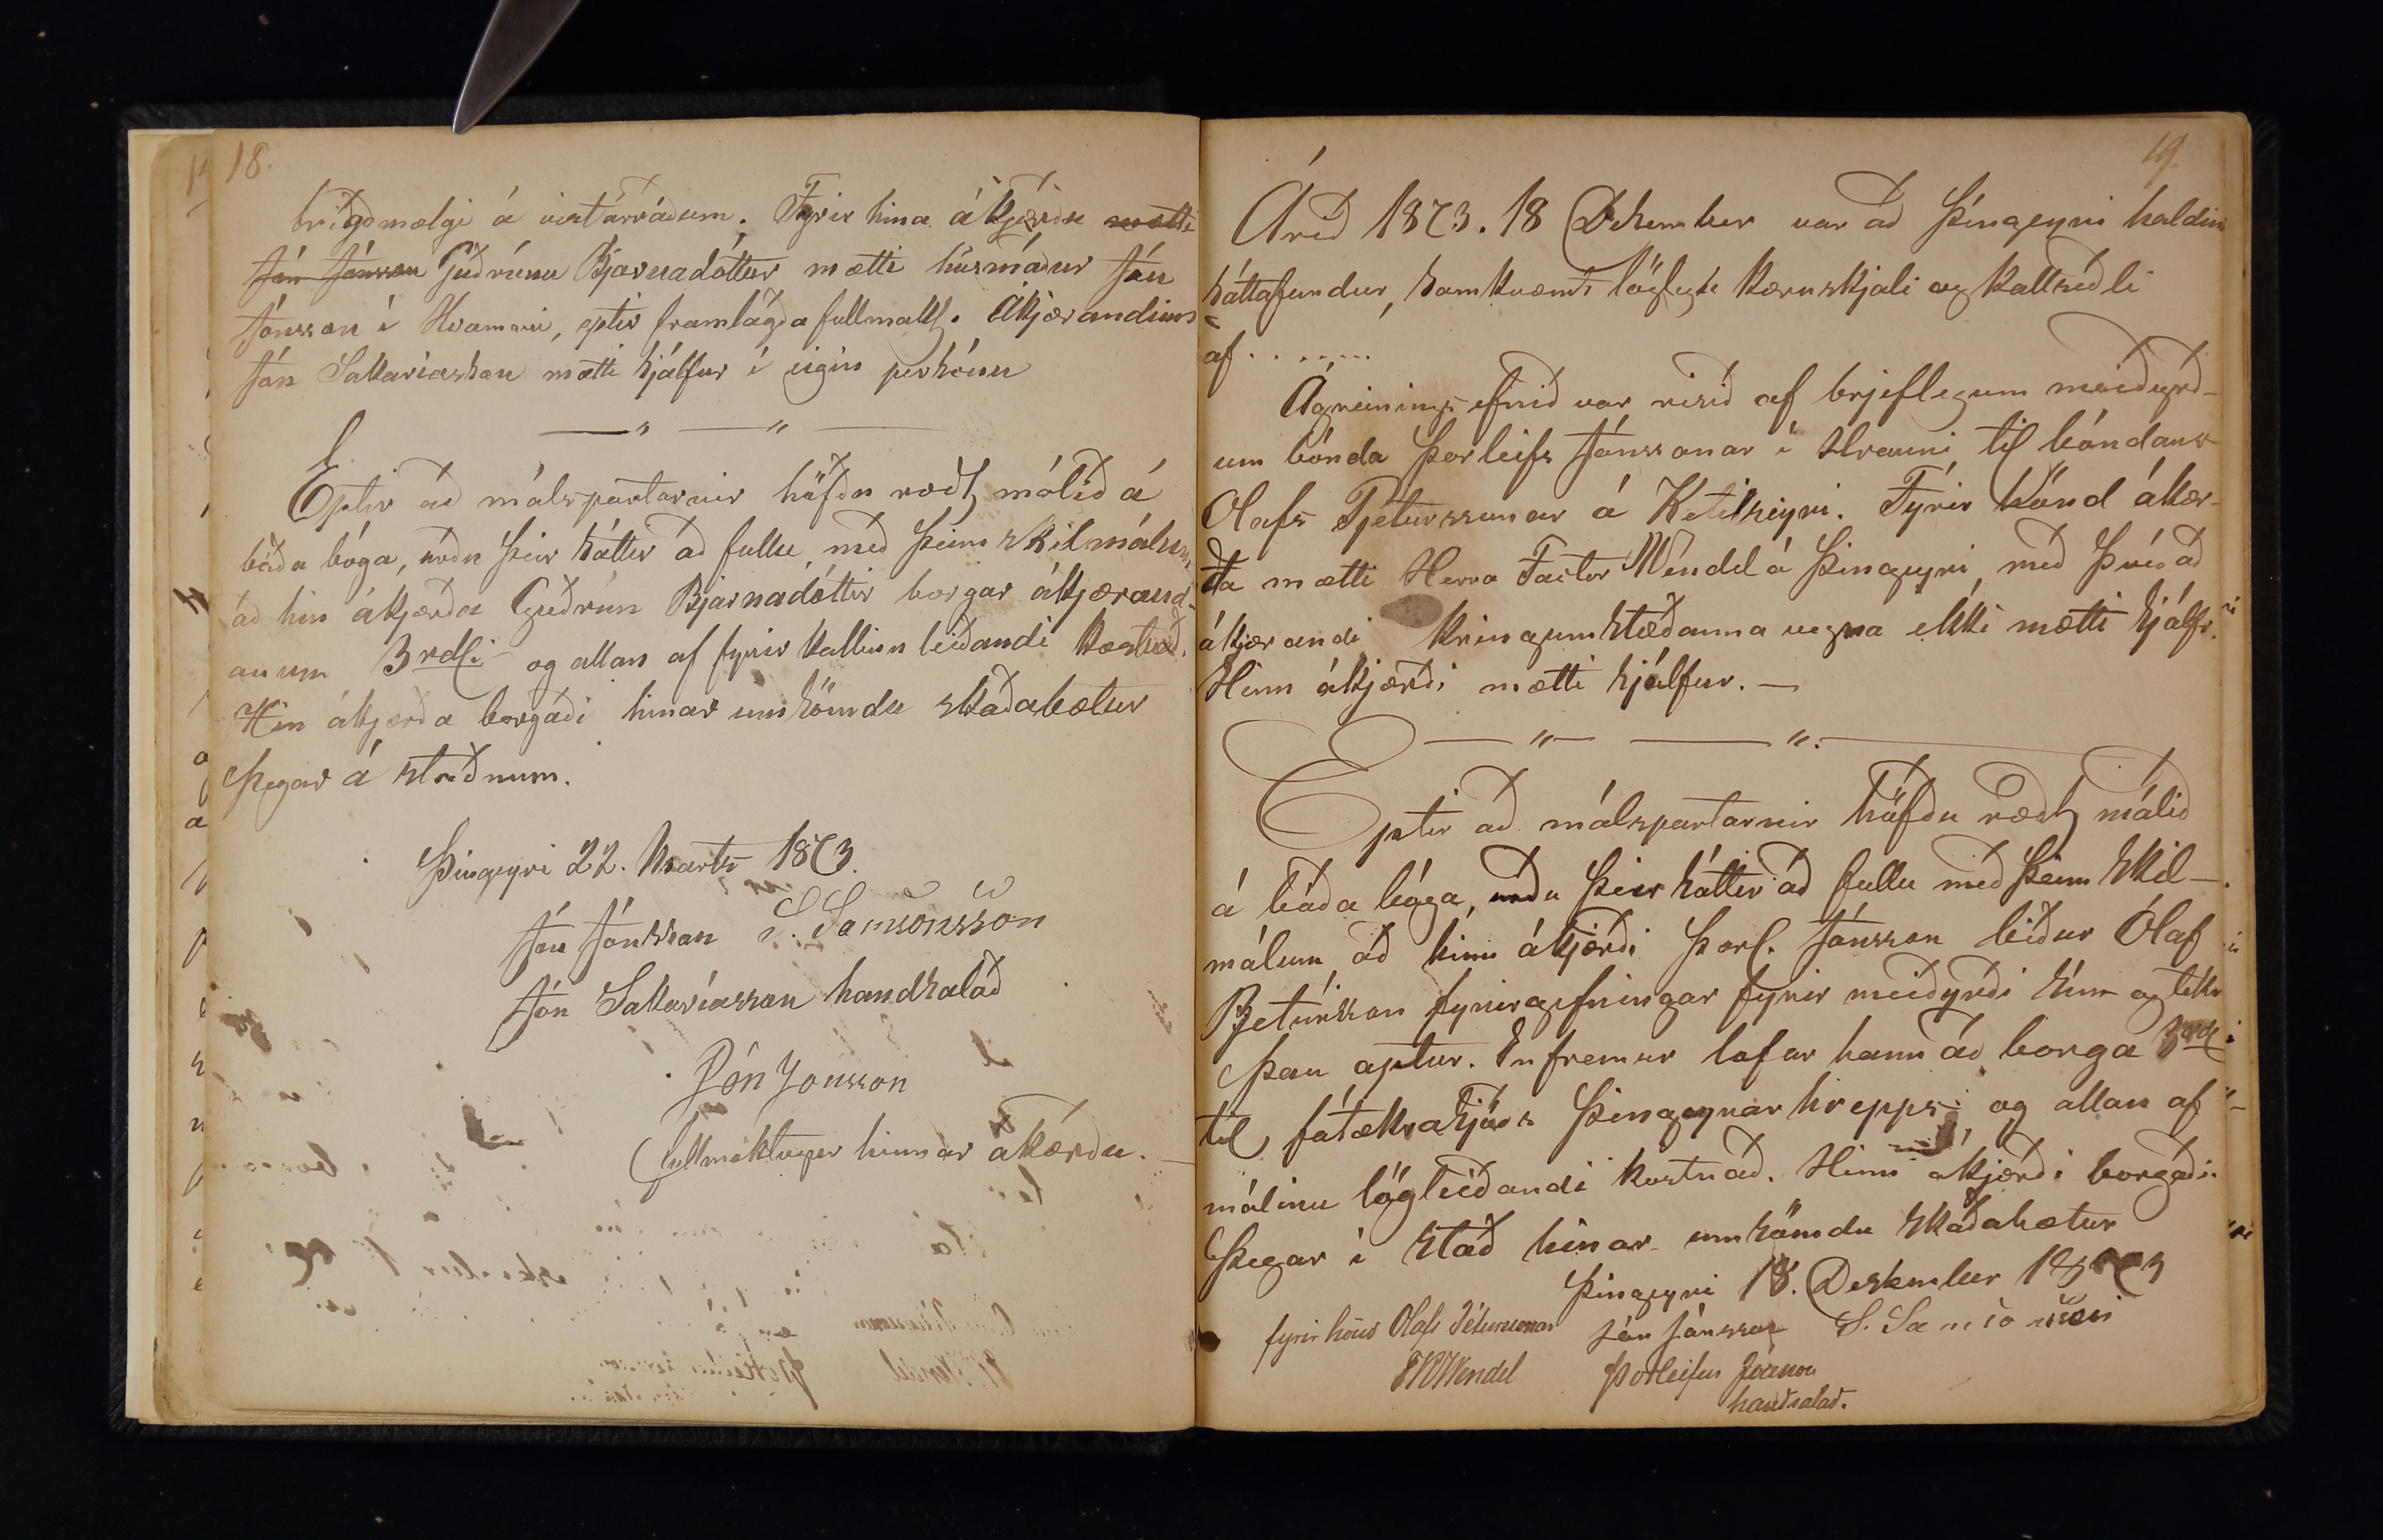 18.
brigðmælgi á vistarráðum. Fyrir hina ákjærðu mætti
Jón Jónsson Guðrúnu Bjarnadóttur mætti húsmaður Jón
Jónsson í Hvammi, eptir framlagða fullmakt. Ákjærandinn
Jón Sakaríasson mætti sjálfur í eigin persónu
Eptir að málspartarnir höfðu rædt málið á
báða bóga, urðu þeir sáttir að fullu, með þeim skilmálum
að hin ákjærða Guðrún Bjarnadóttir borgar ákjærand-
anum 3 rdl. og allan af fyrirkallinu leiðandi kostnað.
Hin ákjærða borgaði hinar umsömdu skaðabætur
þegar á staðnum.
Þingeyri 22. Marts 1873.
Jón Jónsson S. Samsonsson
Jón Sakaríasson handsalað
Jón Jonsson
fullmektugur hinnar ákærðu.
19.
Árið 1873. 18 Desember var að Þingeyri haldin
sáttafundur, samkvæmt löglegu kæruskjali og kallseðli
af . . . . . . .
Ágreinings efnið var risið af brjeflegum meiðyrð-
um bónda Þorleifs Jónssonar í Hrauni til bóndans
Olafs Pjeturssonar á Ketilseyri. Fyrir hönd ákær-
da mætti Herra Factor Wendel á Þingeyri, með því að
ákjærandi kringumstæðanna vegna ekki mætti sjálfr.
Hinn ákjærði mætti sjálfur. —
Eptir að málspartarnir höfðu rædt málið
á báða bóga, urðu þeir sáttir að fullu með þeim skil-
málum að hinn ákjærði Þorl. Jónsson biður Ólaf
Pjetursson fyrirgefningar fyrir meiðyrði sín og tekr
þau aptur. Enfremur lofar hann að borga 3 rdl
til fátækrasjóðs Þingeyrarhrepps, og allan af
málinu löglegðandi kostnað. Hinn ákjærði borgaði
þegar í stað hinar umsömdu skaðabætur
Þingeyri 18. Desember 1873
fyrir hönd Olafs Péturssonar Jón Jónsson S. Samsonsson
FRWendel Þorleifur Jónsson
handsalað.